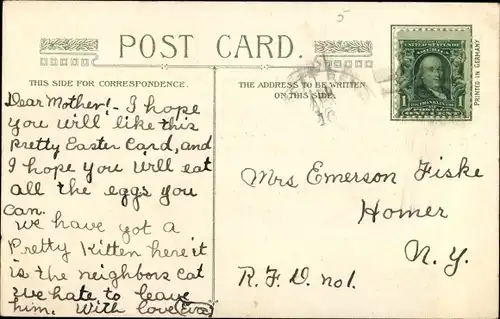 5
POST CARD.
THIS SIDE FOR CORRESPONDENCE.
THE ADDRESS TO BE WRITTEN
ON THIS SIDE.
UNITED STATES OF
AMERICA
1 1
PRINTED IN GERMANY
Dear Mother! - I hope
you will like this
pretty Easter Card, and
I hope you will eat
all the eggs you
can.
We have got a
Pretty Kitten here it
is the neighbors cat
we hate to leave
him. With love
Mrs Emerson Fiske
Homer
N. Y.
R. F. D. no 1.